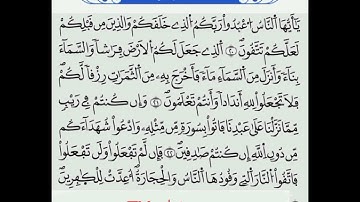 يَـٰٓأَيُّهَا اَ۬لنَّاسُ اُ۟عْبُدُواْ رَبَّكُمُ اُ۬لذِے خَلَقَكُمْ وَالذِينَ مِن قَبْلِكُمْ
لَعَلَّكُمْ تَتَّقُونَ ۝٢٠ اَ۬لذِے جَعَلَ لَكُمُ اُ۬لَارْضَ فِرَٰشاً وَالسَّمَآءَ
بِنَآءً وَأَنزَلَ مِنَ اَ۬لسَّمَآءِ مَآءً فَأَخْرَجَ بِهِۦ مِنَ اَ۬لثَّمَرَٰتِ رِزْقاً لَّكُمْ
فَلَا تَجْعَلُواْ لِلهِ أَندَاداً وَأَنتُمْ تَعْلَمُونَ ۝٢١ وَإِن كُنتُمْ فِے رَيْبٍ
مِّمَّا نَزَّلْنَا عَلَىٰ عَبْدِنَا فَاتُواْ بِسُورَةٍ مِّن مِّثْلِهِۦ وَادْعُواْ شُهَدَآءَكُم
مِّن دُونِ اِ۬للَّهِ إِن كُنتُمْ صَٰدِقِينَ ۝٢٢ فَإِن لَّمْ تَفْعَلُواْ وَلَن تَفْعَلُواْ
فَاتَّقُواْ اُ۬لنَّارَ اَ۬لتِے وَقُودُهَا اَ۬لنَّاسُ وَالْحِجَارَةُ أُعِدَّتْ لِلْكٰ۪فِرِينَ ۝٢٣